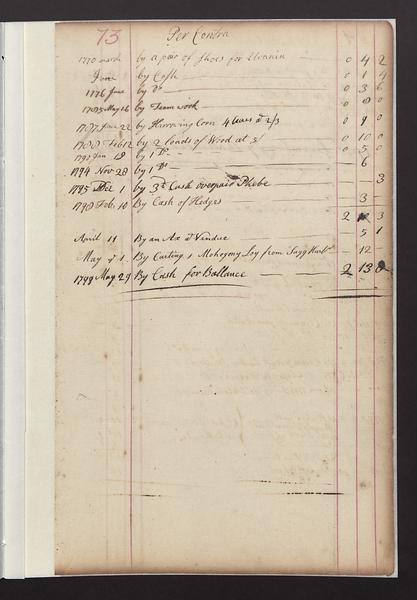 73 Per Contra
1770 march by a pair of Shoes for 0 4 2
June by Cash 0 1 4
1776 June by Do 0 3 6
May 16 by Team work 0 8 0
1787 June 22 by Harrowing Corn 4 at 2/3 0 9 0
1788 Feb 12 by 2 loads of Wood at 5/ 0 10 0
Jan 18 by 1 Do 0 5 0
1794 Nov 28 by 1 Do 6
1795 Dec 1 by 3d Cash overpaid Phebe 3
1798 Feb 10 By Cash of Hedges 3
2 3
April 11 By an Ax at Vendue 5 1
May 1 By Carting 1 Mohogony Log from Sagg 12
1799 May 29 By Cash for Ballance 2 13